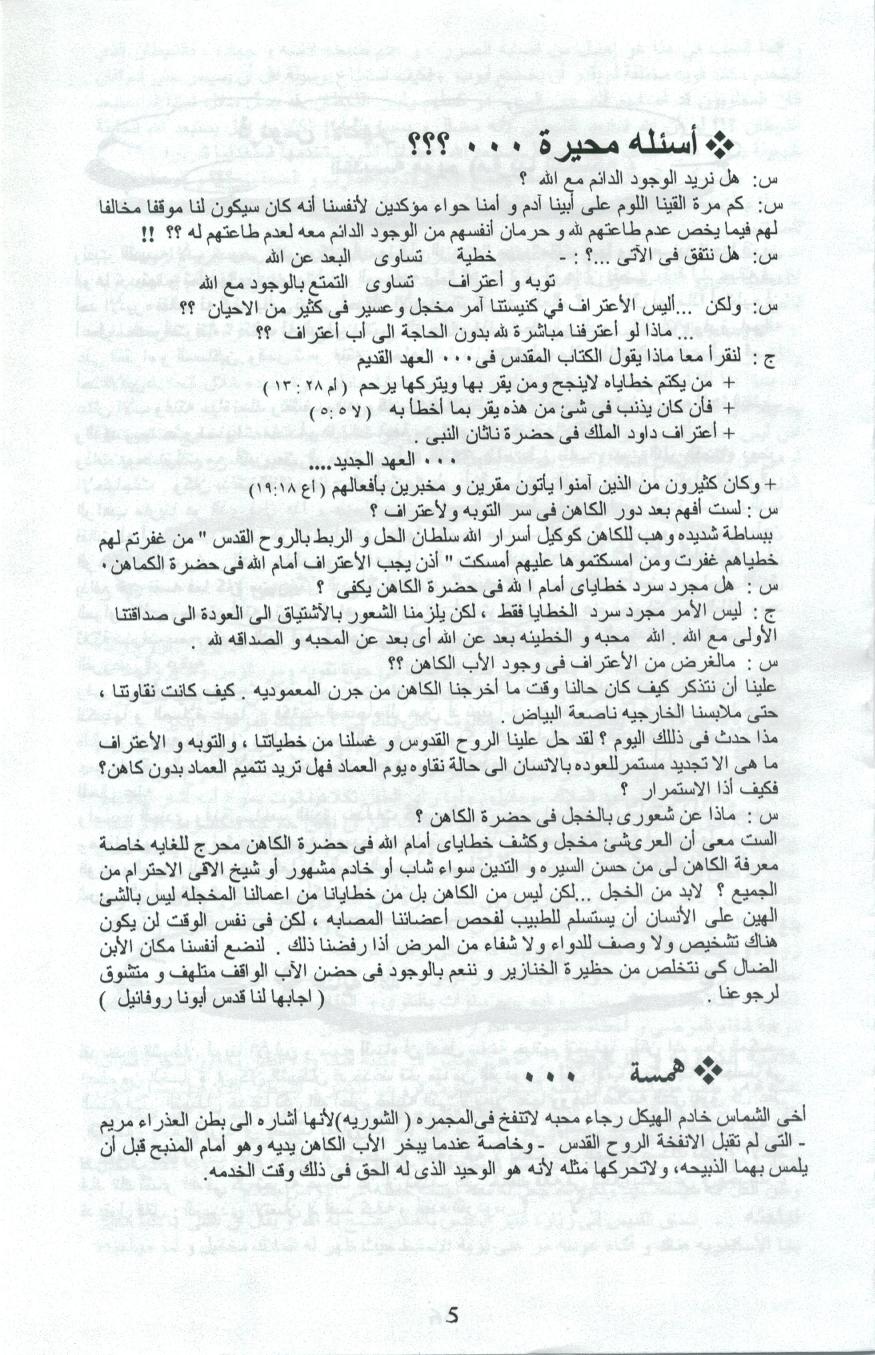 ❖ أسئله محيرة ٠٠٠ ؟؟؟
س: هل نريد الوجود الدائم مع الله ؟
س: كم مرة القينا اللوم على أبينا آدم و أمنا حواء مؤكدين لأنفسنا أنه كان سيكون لنا موقفا مخالفا
لهم فيما يخص عدم طاعتهم لله و حرمان أنفسهم من الوجود الدائم معه لعدم طاعتهم له ؟؟ !!
س: هل نتفق فى الآتى ...؟ : - خطية تساوى البعد عن الله
توبه و أعتراف تساوى التمتع بالوجود مع الله
س: ولكن ...أليس الأعتراف في كنيستنا آمر مخجل وعسير فى كثير من الاحيان ؟؟
... ماذا لو أعترفنا مباشرة لله بدون الحاجة الى أب أعتراف ؟؟
ج : لنقرأ معا ماذا يقول الكتاب المقدس فى٠٠٠ العهد القديم
+ من يكتم خطاياه لاينجح ومن يقر بها ويتركها يرحم ( ام ٢٨ : ١٣ )
+ فأن كان يذنب فى شئ من هذه يقر بما أخطأ به ( لا ٥ :٥ )
+ أعتراف داود الملك فى حضرة ناثان النبى .
٠٠٠ العهد الجديد....
+ وكان كثيرون من الذين آمنوا يأتون مقرين و مخبرين بأفعالهم ( أع ١٩:١٨)
س : لست أفهم بعد دور الكاهن فى سر التوبه ولأعتراف ؟
ببساطة شديده وهب للكاهن كوكيل أسرار الله سلطان الحل و الربط بالروح القدس " من غفرتم لهم
خطياهم غفرت ومن امسكتموها عليهم أمسكت " أذن يجب الأعتراف أمام الله فى حضرة الكماهن ٠
س : هل مجرد سرد خطاياى أمام الله فى حضرة الكاهن يكفى ؟
ج : ليس الأمر مجرد سرد الخطايا فقط ، لكن يلزمنا الشعور بالآشتياق الى العودة الى صداقتنا
الأولى مع الله . الله محبه و الخطيئه بعد عن الله أى بعد عن المحبه و الصداقه لله .
س : مالغرض من الأعتراف فى وجود الأب الكاهن ؟؟
علينا أن نتذكر كيف كان حالنا وقت ما أخرجنا الكاهن من جرن المعموديه . كيف كانت نقاوتنا ،
حتى ملابسنا الخارجيه ناصعة البياض .
مذا حدث فى ذللك اليوم ؟ لقد حل علينا الروح القدوس و غسلنا من خطياتنا ، والتوبه و الأعتراف
ما هى الا تجديد مستمر للعوده بالانسان الى حالة نقاوه يوم العماد فهل تريد تتميم العماد بدون كاهن؟
فكيف أذا الاستمرار ؟
س : ماذا عن شعورى بالخجل فى حضرة الكاهن ؟
الست معى أن العرى شئ مخجل وكشف خطاياى أمام الله فى حضرة الكاهن محرج للغايه خاصة
معرفة الكاهن لى من حسن السيره و التدين سواء شاب أو خادم مشهور أو شيخ الاقى الاحترام من
الجميع ؟ لابد من الخجل ...لكن ليس من الكاهن بل من خطايانا من اعمالنا المخجله ليس بالشئ
الهين على الأنسان أن يستسلم للطبيب لفحص أعضائنا المصابه ، لكن فى نفس الوقت لن يكون
هناك تشخيص ولا وصف للدواء ولا شفاء من المرض أذا رفضنا ذلك . لنضع أنفسنا مكان الأبن
الضال كى نتخلص من حظيرة الخنازير و ننعم بالوجود فى حضن الآب الواقف متلهف و متشوق
لرجوعنا . ( اجابها لنا قدس أبونا روفائيل )
❖ همسة ٠٠٠
أخى الشماس خادم الهيكل رجاء محبه لاتنفخ فى المجمره ( الشوريه)لأنها أشاره الى بطن العذراء مريم
- التى لم تقبل الانفخة الروح القدس - وخاصة عندما يبخر الأب الكاهن يديه وهو أمام المذبح قبل أن
يلمس بهما الذبيحه، ولاتحركها مثله لأنه هو الوحيد الذى له الحق فى ذلك وقت الخدمه.
5